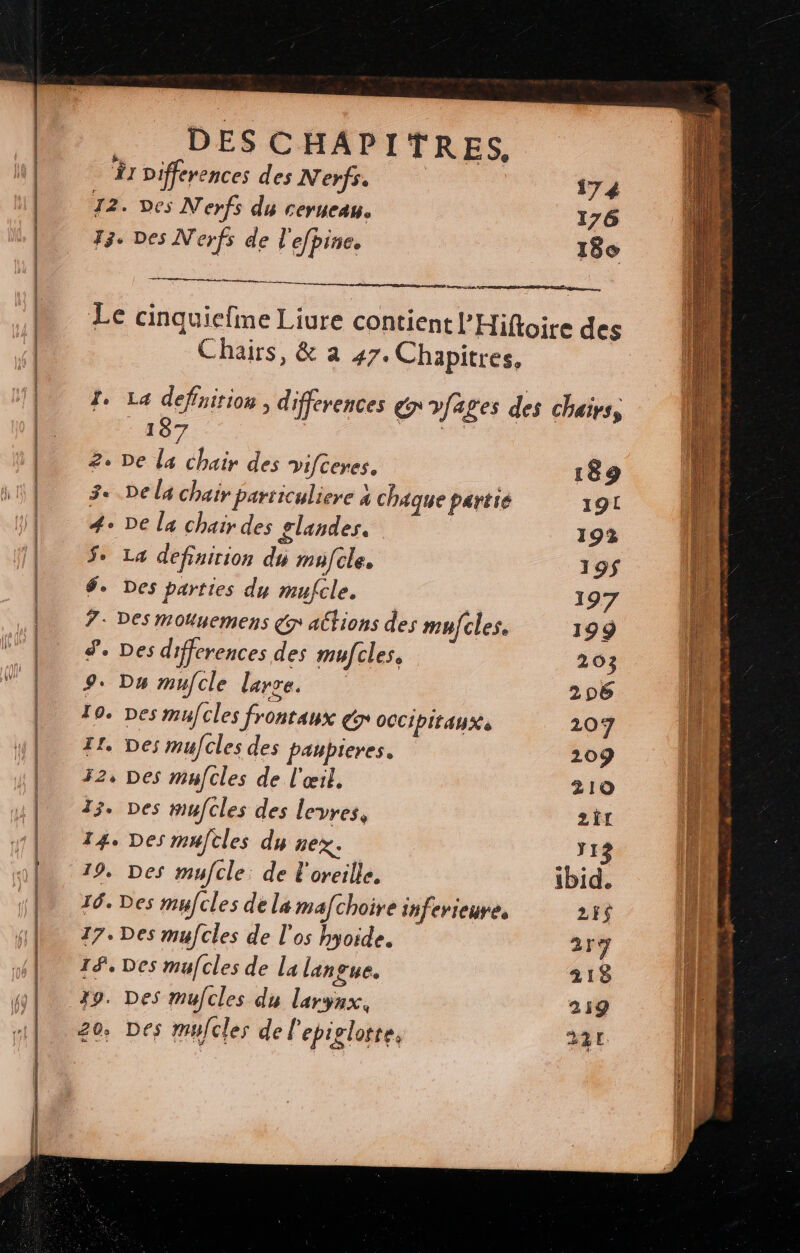 DES CHAPITRES,
11 Differences des Nerfs. 174
12. Des Nerfs du cerueau. 176
13. Des Nerfs de l'eſpine. 180
Le cinquieſme Liure contient l'Hiſtoire des
Chairs, & a 47. Chapitres,
1. La deffinition, differences & vſages des chairs,
187
2. De la chair des viſceres. 189
3. De la chair particuliere à chaque partie 191
4. De la chair des glandes. 192
5. La definition du muſcle. 195
6. Des parties du muſcle. 197
7. Des mouuemens & actions des muſcles. 199
8. Des differences des muſcles, 203
9. Du muſcle large. 206
10. Des muſcles frontaux & occipitaux. 207
11. Des muſcles des paupieres. 209
12. Des muſcles de l'œil. 210
13. Des muſcles des levres, 211
14. Des muſcles du nez. 113
19. Des muſcle de l'oreille. ibid.
16. Des muſcles de la maſchoire inferieure. 215
17. Des muſcles de l'os hyoide. 217
18. Des muſcles de la langue. 218
19. Des muſcles du larynx, 219
20. Des muſcles de l'epiglotte, 221